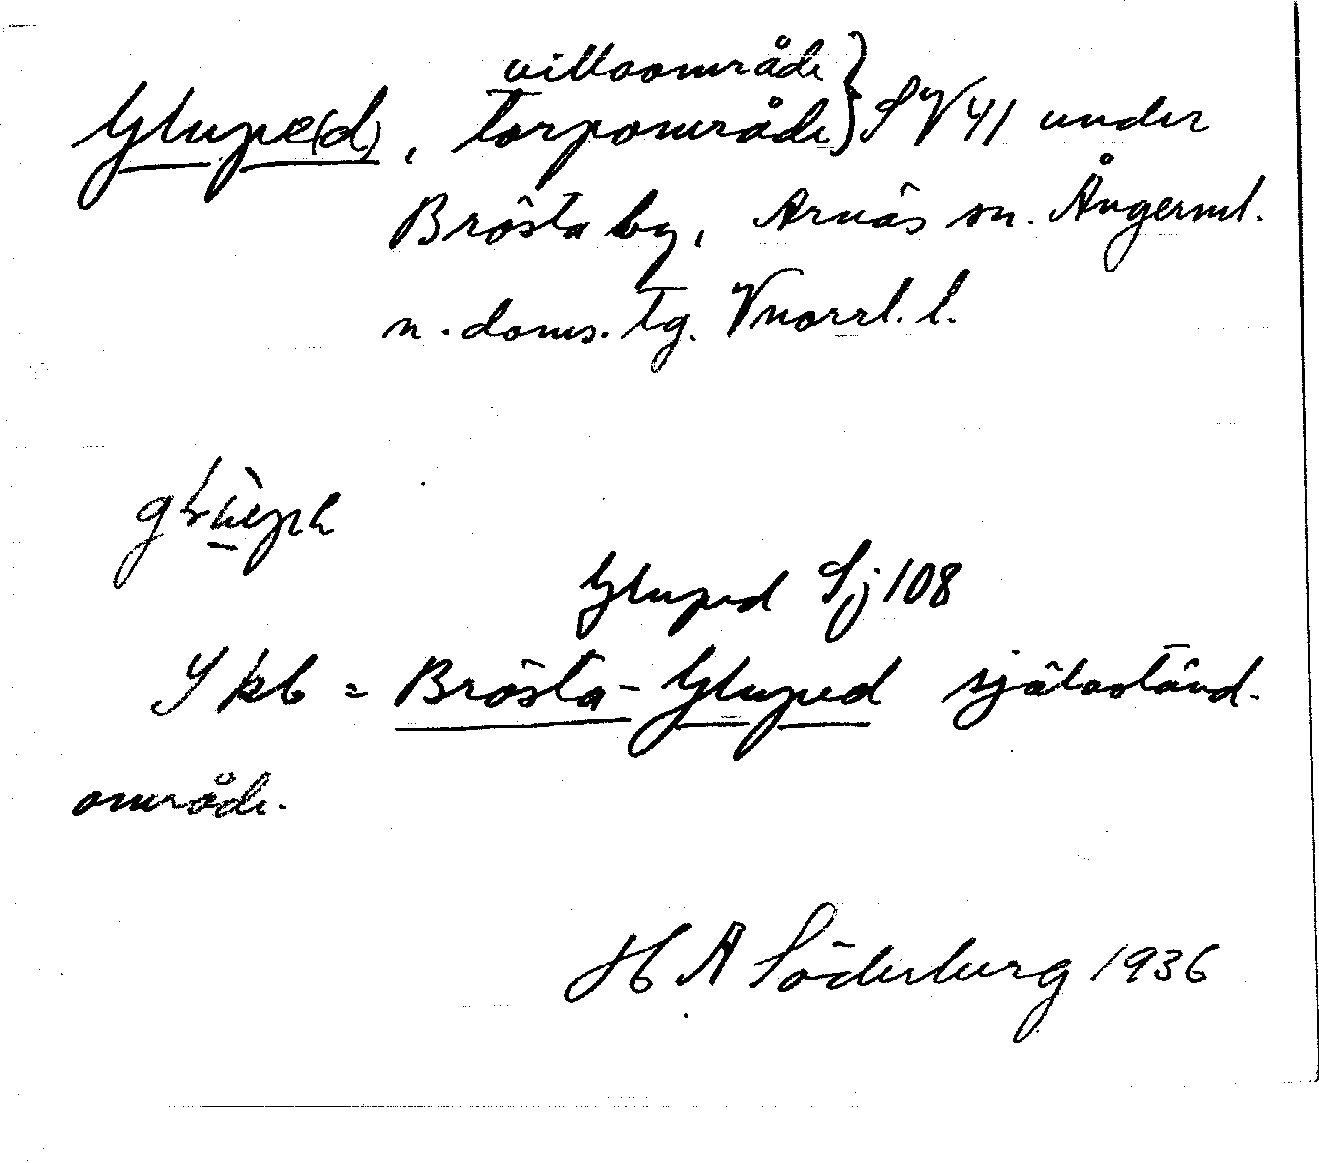 villaområde
Glupe(d), torpområde} SV 41 under
Brösta by, Arnäs sn. Ångerml.
n. doms. tg. Vnorrl. l.
Gluped Sj 108
I kb = Brösta-Gluped självständ.
område.
H A Söderberg 1936